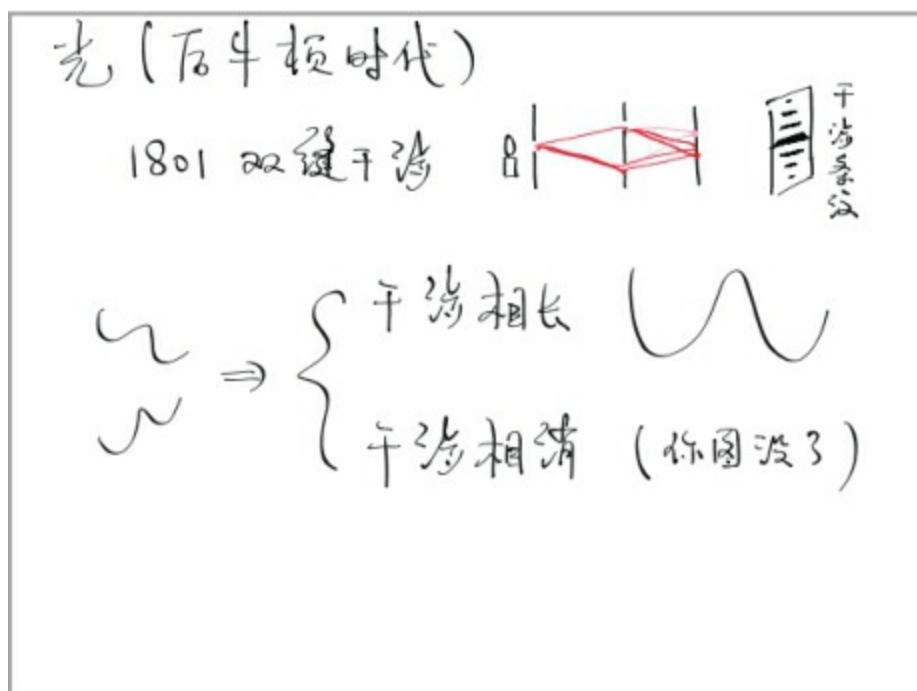 光(后牛顿时代)
1801 双缝干涉
干涉条纹
⇒ { 干涉相长
干涉相消 (你图没了)